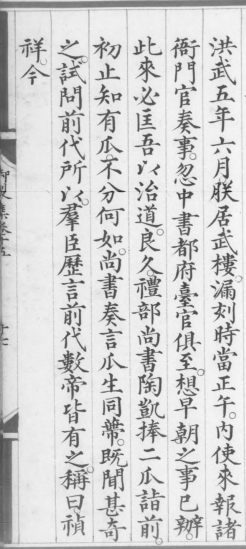 洪武五年六月朕居武樓。漏刻時當正午。內使來報諸
衙門官奏事。忽中書都府臺官俱至。想早朝之事已辦。
此來必匡吾以治道。良久禮部尚書陶凱捧二瓜詣前。
初止知有瓜。不分何如。尚書奏言瓜生同蔕。旣聞甚奇
之。試問前代所以。羣臣歷言前代數帝皆有之。稱曰禎
祥。今